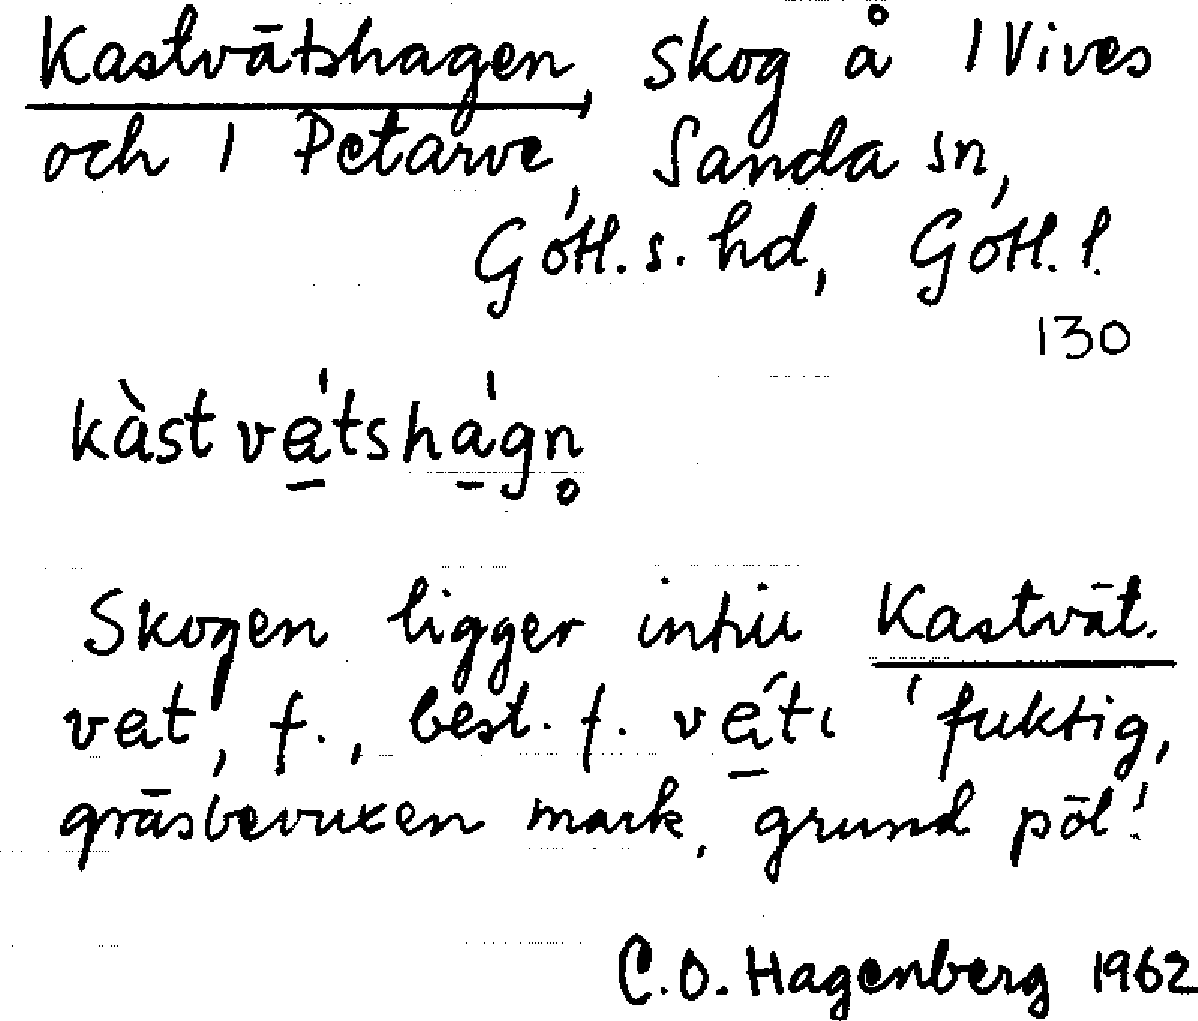 Kastvätshagen, skog å 1 Vives
och 1 Petarve, Sanda sn,
Gotl. s. hd, Gotl. l.
130
kàstvǝ̱́tshá̱gn̥
Skogen ligger intill Kastvät.
vat, f., best. f. vá̱tı 'fuktig,
gräsbevuxen mark, grund pöl'.
C.O. Hagenberg 1962